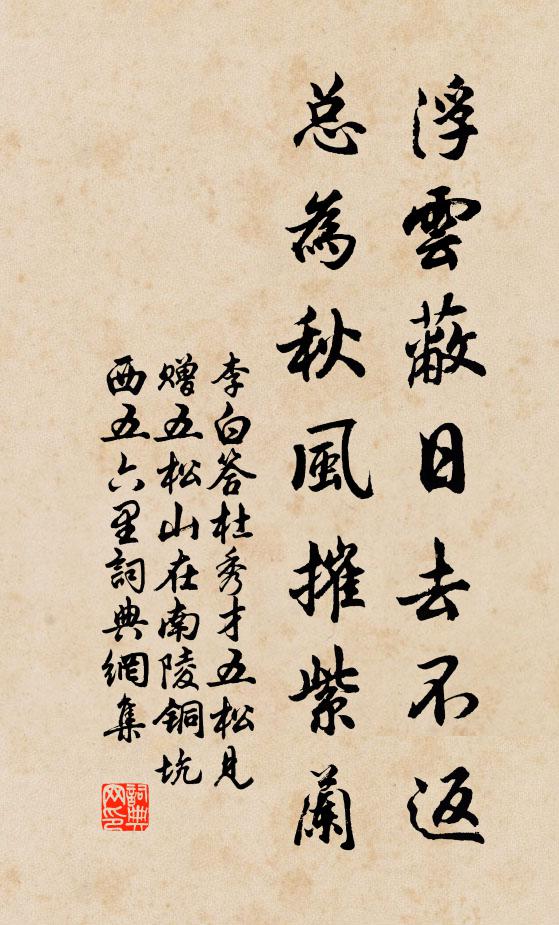 浮雲蔽日去不返
总為秋風摧紫蘭
李白答杜秀才五松見
赠五松山在南陵銅坑
西五六里詞典網集
詞典网印